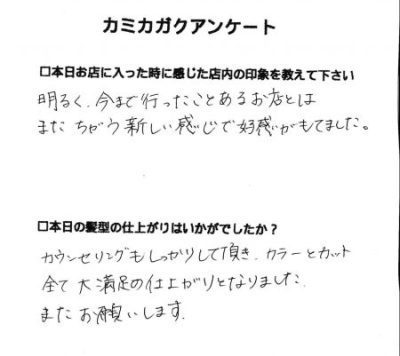 カミカガクアンケート
□本日お店に入った時に感じた店内の印象を教えて下さい
明るく、今まで行ったことあるお店とは
またちがう新しい感じで好感がもてました。
□本日の髪型の仕上がりはいかがでしたか？
カウンセリングもしっかりして頂き、カラーとカット
全て大満足の仕上がりとなりました。
またお願いします。